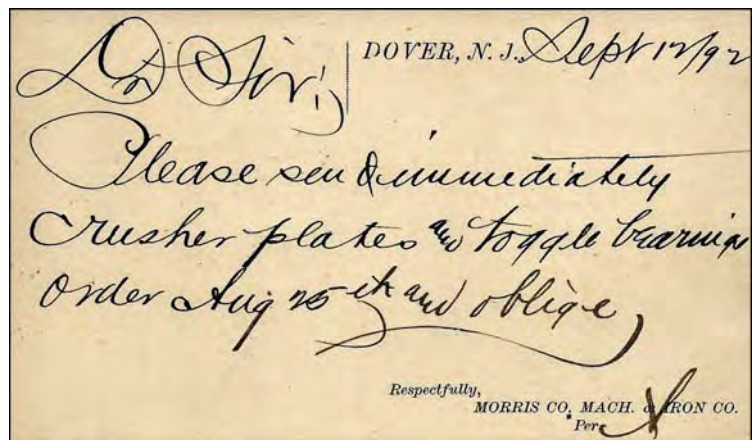 Dr Sir; DOVER, N. J., Sept 12/92
Please send immediately
crusher plates and toggle bearings
order Aug 25th and oblige
Respectfully,
MORRIS CO. MACH. & IRON CO.
Per